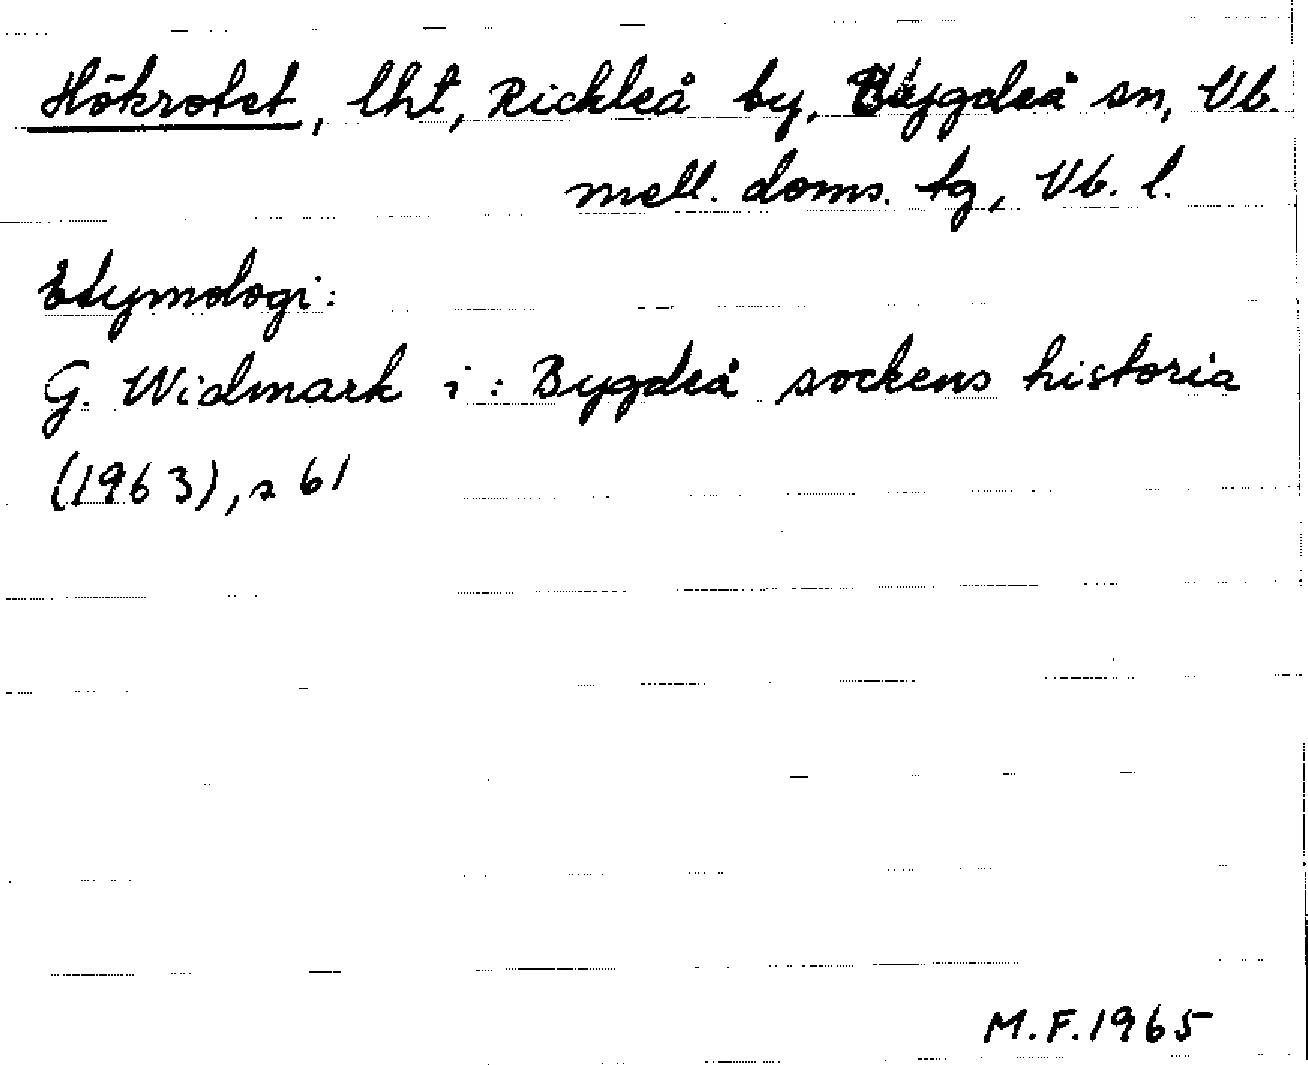 Hökrotet, lht, Rickleå by, Bygdeå sn, Vb.
mell. doms. tg, Vb. l.
Etymologi:
G. Widmark i: Bygdeå sockens historia
(1963), s 61
M.F.1965